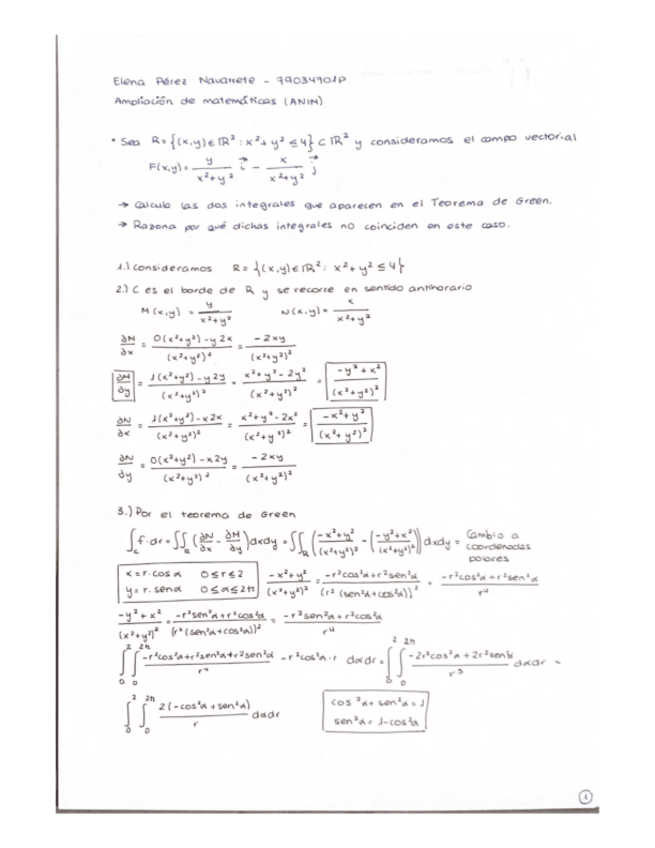 Elena Pérez Navarrete - 79034901P
Ampliación de matemáticas (ANIM)
• Sea R={(x,y)∈ℝ²: x²+y²≤4}⊂ℝ² y consideramos el campo vectorial
F(x,y)= y/(x²+y²) i⃗ - x/(x²+y²) j⃗
→ Calcula las dos integrales que aparecen en el Teorema de Green.
→ Razona por qué dichas integrales no coinciden en este caso.
1.) Consideramos R={(x,y)∈ℝ²: x²+y²≤4}
2.) C es el borde de R y se recorre en sentido antihorario
M(x,y) = y/(x²+y²) N(x,y)= x/(x²+y²)
∂M/∂x = (0(x²+y²)-y2x)/(x²+y²)² = -2xy/(x²+y²)²
∂M/∂y = (1(x²+y²)-y2y)/(x²+y²)² = (x²+y²-2y²)/(x²+y²)² = (-y²+x²)/(x²+y²)²
∂N/∂x = (1(x²+y²)-x2x)/(x²+y²)² = (x²+y²-2x²)/(x²+y²)² = (-x²+y²)/(x²+y²)²
∂N/∂y = (0(x²+y²)-x2y)/(x²+y²)² = -2xy/(x²+y²)²
3.) Por el teorema de Green
∫_c f·dr = ∬_R (∂N/∂x - ∂M/∂y) dxdy = ∬_R ((-x²+y²)/(x²+y²)² - ((-y²+x²)/(x²+y²)²)) dxdy = Cambio a coordenadas polares
x=r·cosα 0≤r≤2
y=r·senα 0≤α≤2π
(-x²+y²)/(x²+y²)² = (-r²cos²α+r²sen²α)/(r²(sen²α+cos²α))² = (-r²cos²α+r²sen²α)/r⁴
(-y²+x²)/(x²+y²)² = (-r²sen²α+r²cos²α)/(r²(sen²α+cos²α))² = (-r²sen²α+r²cos²α)/r⁴
∫₀²∫₀^2π (-r²cos²α+r²sen²α+r²sen²α)/r⁴ -r²cos²α·r dαdr = ∫₀²∫₀^2π (-2r²cos²α+2r²sen²α)/r³ dαdr =
∫₀²∫₀^2π 2(-cos²α+sen²α)/r dαdr
cos²α+sen²α=1
sen²α=1-cos²α
1